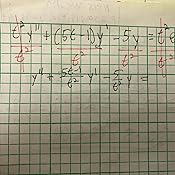 t² y'' + (5t-1) y' - 5y = t² e
t² t² t² t²
y'' + 5t-1/t² y' - 5/t² y =